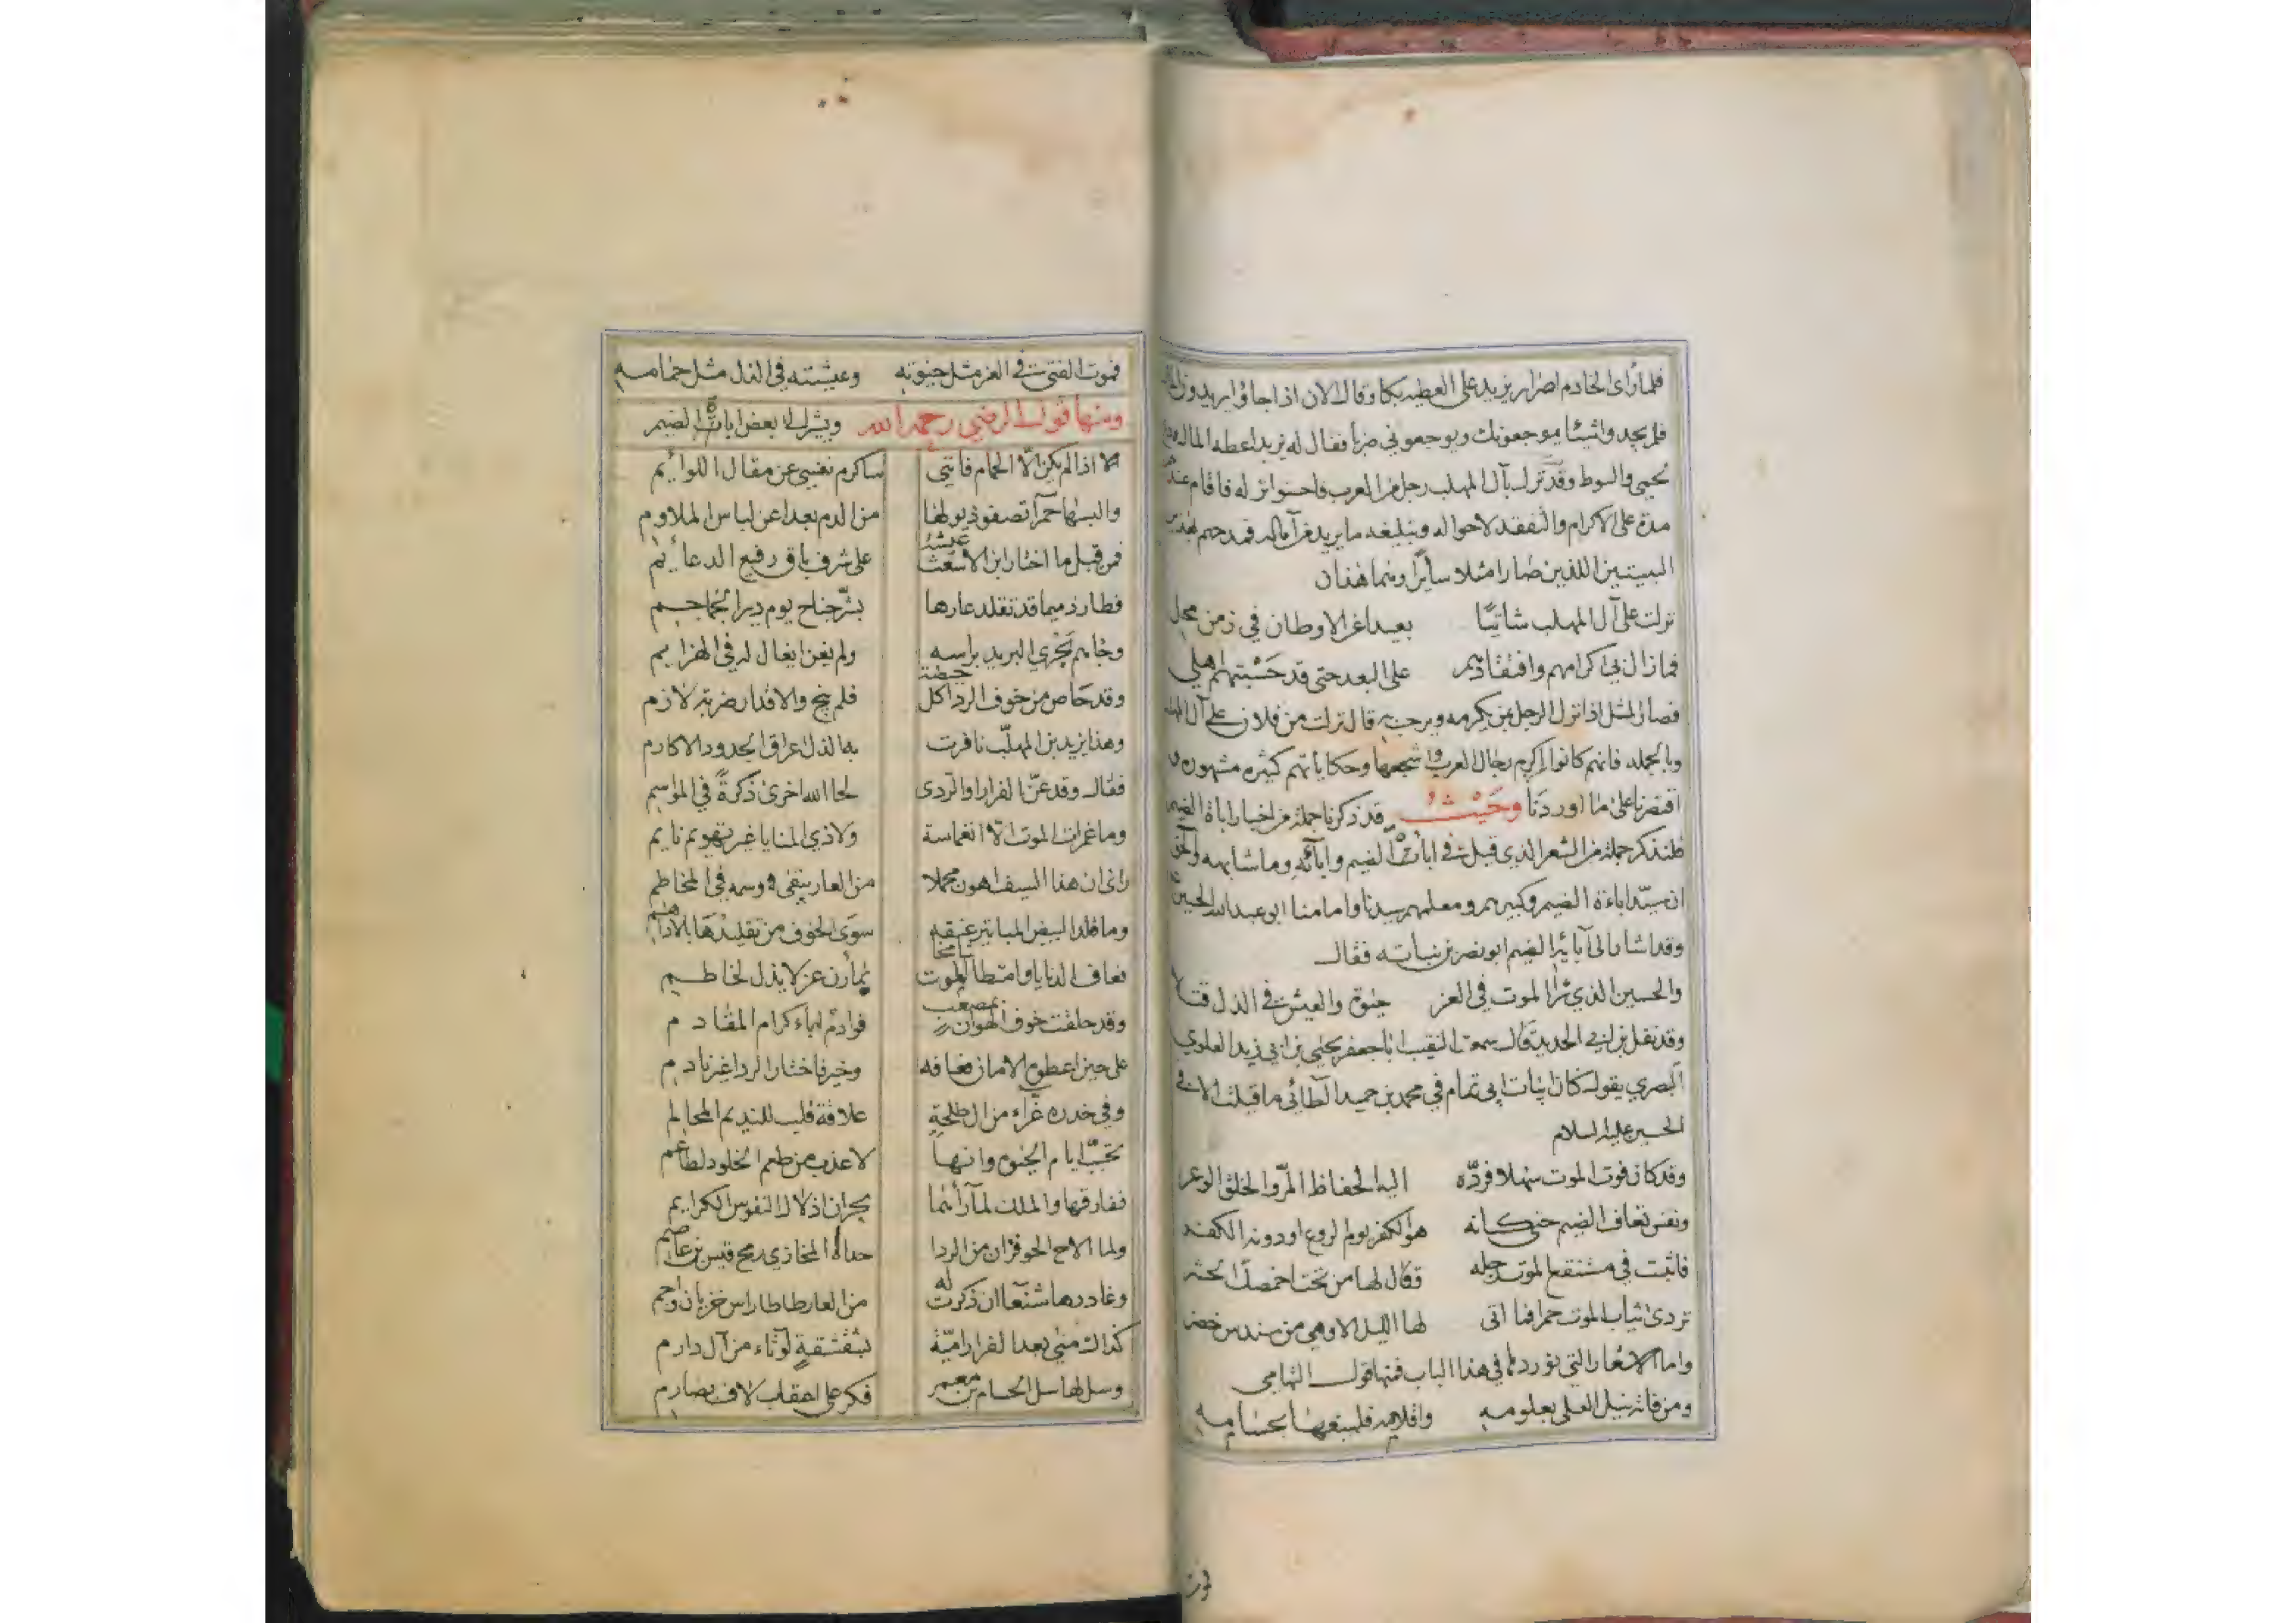 فلما رأى الخادم اصرار يزيد على العطيه بكا وقال الان اذا جاؤا يريدون المال
فلم يجدوا شيئا يوجعونك ويوجعوني ضربا فقال له يزيد اعطه المال
يحيى والسوط وقد نزل بآل المهلب رجل من العرب فاحسنوا نزله فاقام عندهم
مدة على الاكرام والتفقد لاحواله وتبليغه ما يريد من آماله فمدحهم بهذين
البيتين اللذين صارا مثلا سائرا وهما هذان
نزلت على آل المهلب شاتيًا بعيدا عن الاوطان في زمن محل
فما زال بي اكرامهم وافتقادهم على البعد حتى قد حَسْبتهم اهلي
فصار المثل اذا نزل الرجل بمن يكرمه ويرحب به قال نزلت من فلان على آل المهلب
وبالجمله فانهم كانوا اكرم رجال العرب واشجعها وحكاياتهم كثيره مشهوره
اقتصرنا على ما اوردنا وحيث قد ذكرنا جملة من اخبار اباة الضيم
فلنذكر جملة من الشعر الذي قيل في اباة الضيم وابائه وما شابهه والحق
ان سيد اباءة الضيم وكبيرهم ومعلمهم سيدنا وامامنا ابو عبد الله الحسين
وقد اشار الى آبائه الضيم ابو نصر بن نباته فقال
والحسين الذي رأ الموت في العز حيوة والعيش في الذل قتلا
وقد نقل بن ابي الحديد قال سمعت النقيب ابا جعفر يحيى بن ابي زيد العلوي
البصري يقول كان ابيات ابي تمام في محمد بن حميد الطائي ما قيلت الا في
الحسين عليه السلام
وقد كان فوت الموت سهلا فردّه اليه الحفاظ المرّ والخلق الوعر
ونفس تعاف الضيم حتى كانه هو الكفر يوم الروع او دونه الكفر
فاثبت في مستنقع الموت رجله وقال لها من تحت اخمصك الحشر
تردى ثياب الموت حمرا فما اتى لها الليل الا وهي من سندس خضر
واما الاشعار التي نوردها في هذا الباب فمنها قول التهامي
ومن فاته نيل العلى بعلومه واقلامه فليبتغها بحسامه
فموت الفتى في العز مثل حيوته وعيشته في الذل مثل حمامه
ومنها قول الرضي رحمه الله ويشير الى بعض اباة الضيم
الا اذا لم يكن الا الحمام فانني ساكرم نفسي عن مقال اللوائم
والبسها حمرا تصفو ذيولها من الدم بعدا عن لباس الملاوم
فمن قبل ما اختار ابن الاشعث عيشه على شرف باق رفيع الدعائم
فطار ذميما قد تقلد عارها بشرّ جناح يوم دير الجماجم
وجاءهم يَجْري البريد براسه ولم يغن ايغال له في الهزايم
وقد حاص من خوف الردا كل حيصة فلم ينج والاقدار ضربة لازم
وهذا يزيد بن المهلّب نافرت به الذل اعراق الجدود الاكارم
فقال وقد عنّ الفرار او الردى لحا الله اخرى ذكرةً في المواسم
وما غمرات الموت الا انغماسة ولا ذي المنايا غير تهويم نايم
راى ان هذا السيف اهون محملا من العار يبقى وسمه في المخاطم
وما قلد البيض المباتير عنقه سوى الخوف من تقليدها بالاداهم
تعاف الدنايا وامتطا الموت شامخا بمارن عز لا يذل لخاطم
وقد حلقت خوف الهوان بمصعب قوادم اباء كرام المقادم
على حين اعطوه الامان فعافه وخير فاختار الردا غير نادم
وفي خدره غرّاء من ال طلحةٍ علاقة قلب للنديم المخالم
تحبّب ايام الحيوة وانها لاعذب من طعم الخلود لطاعم
ففارقها والملك لما رآهما يجران اذلال النفوس الكرايم
ولما الاح الحوفزان من الردا حداه المخازي رمح قيس بن عاصم
وغادرها شنعا ان ذكرت له من العار طاطا راس خزيان واجم
كذاك منى بعد الفرار اميّة بشقشقةٍ لوثاء من آل دارم
وسل لها سل الحسام بن معمر فكر على اعقاب لاف بصارم